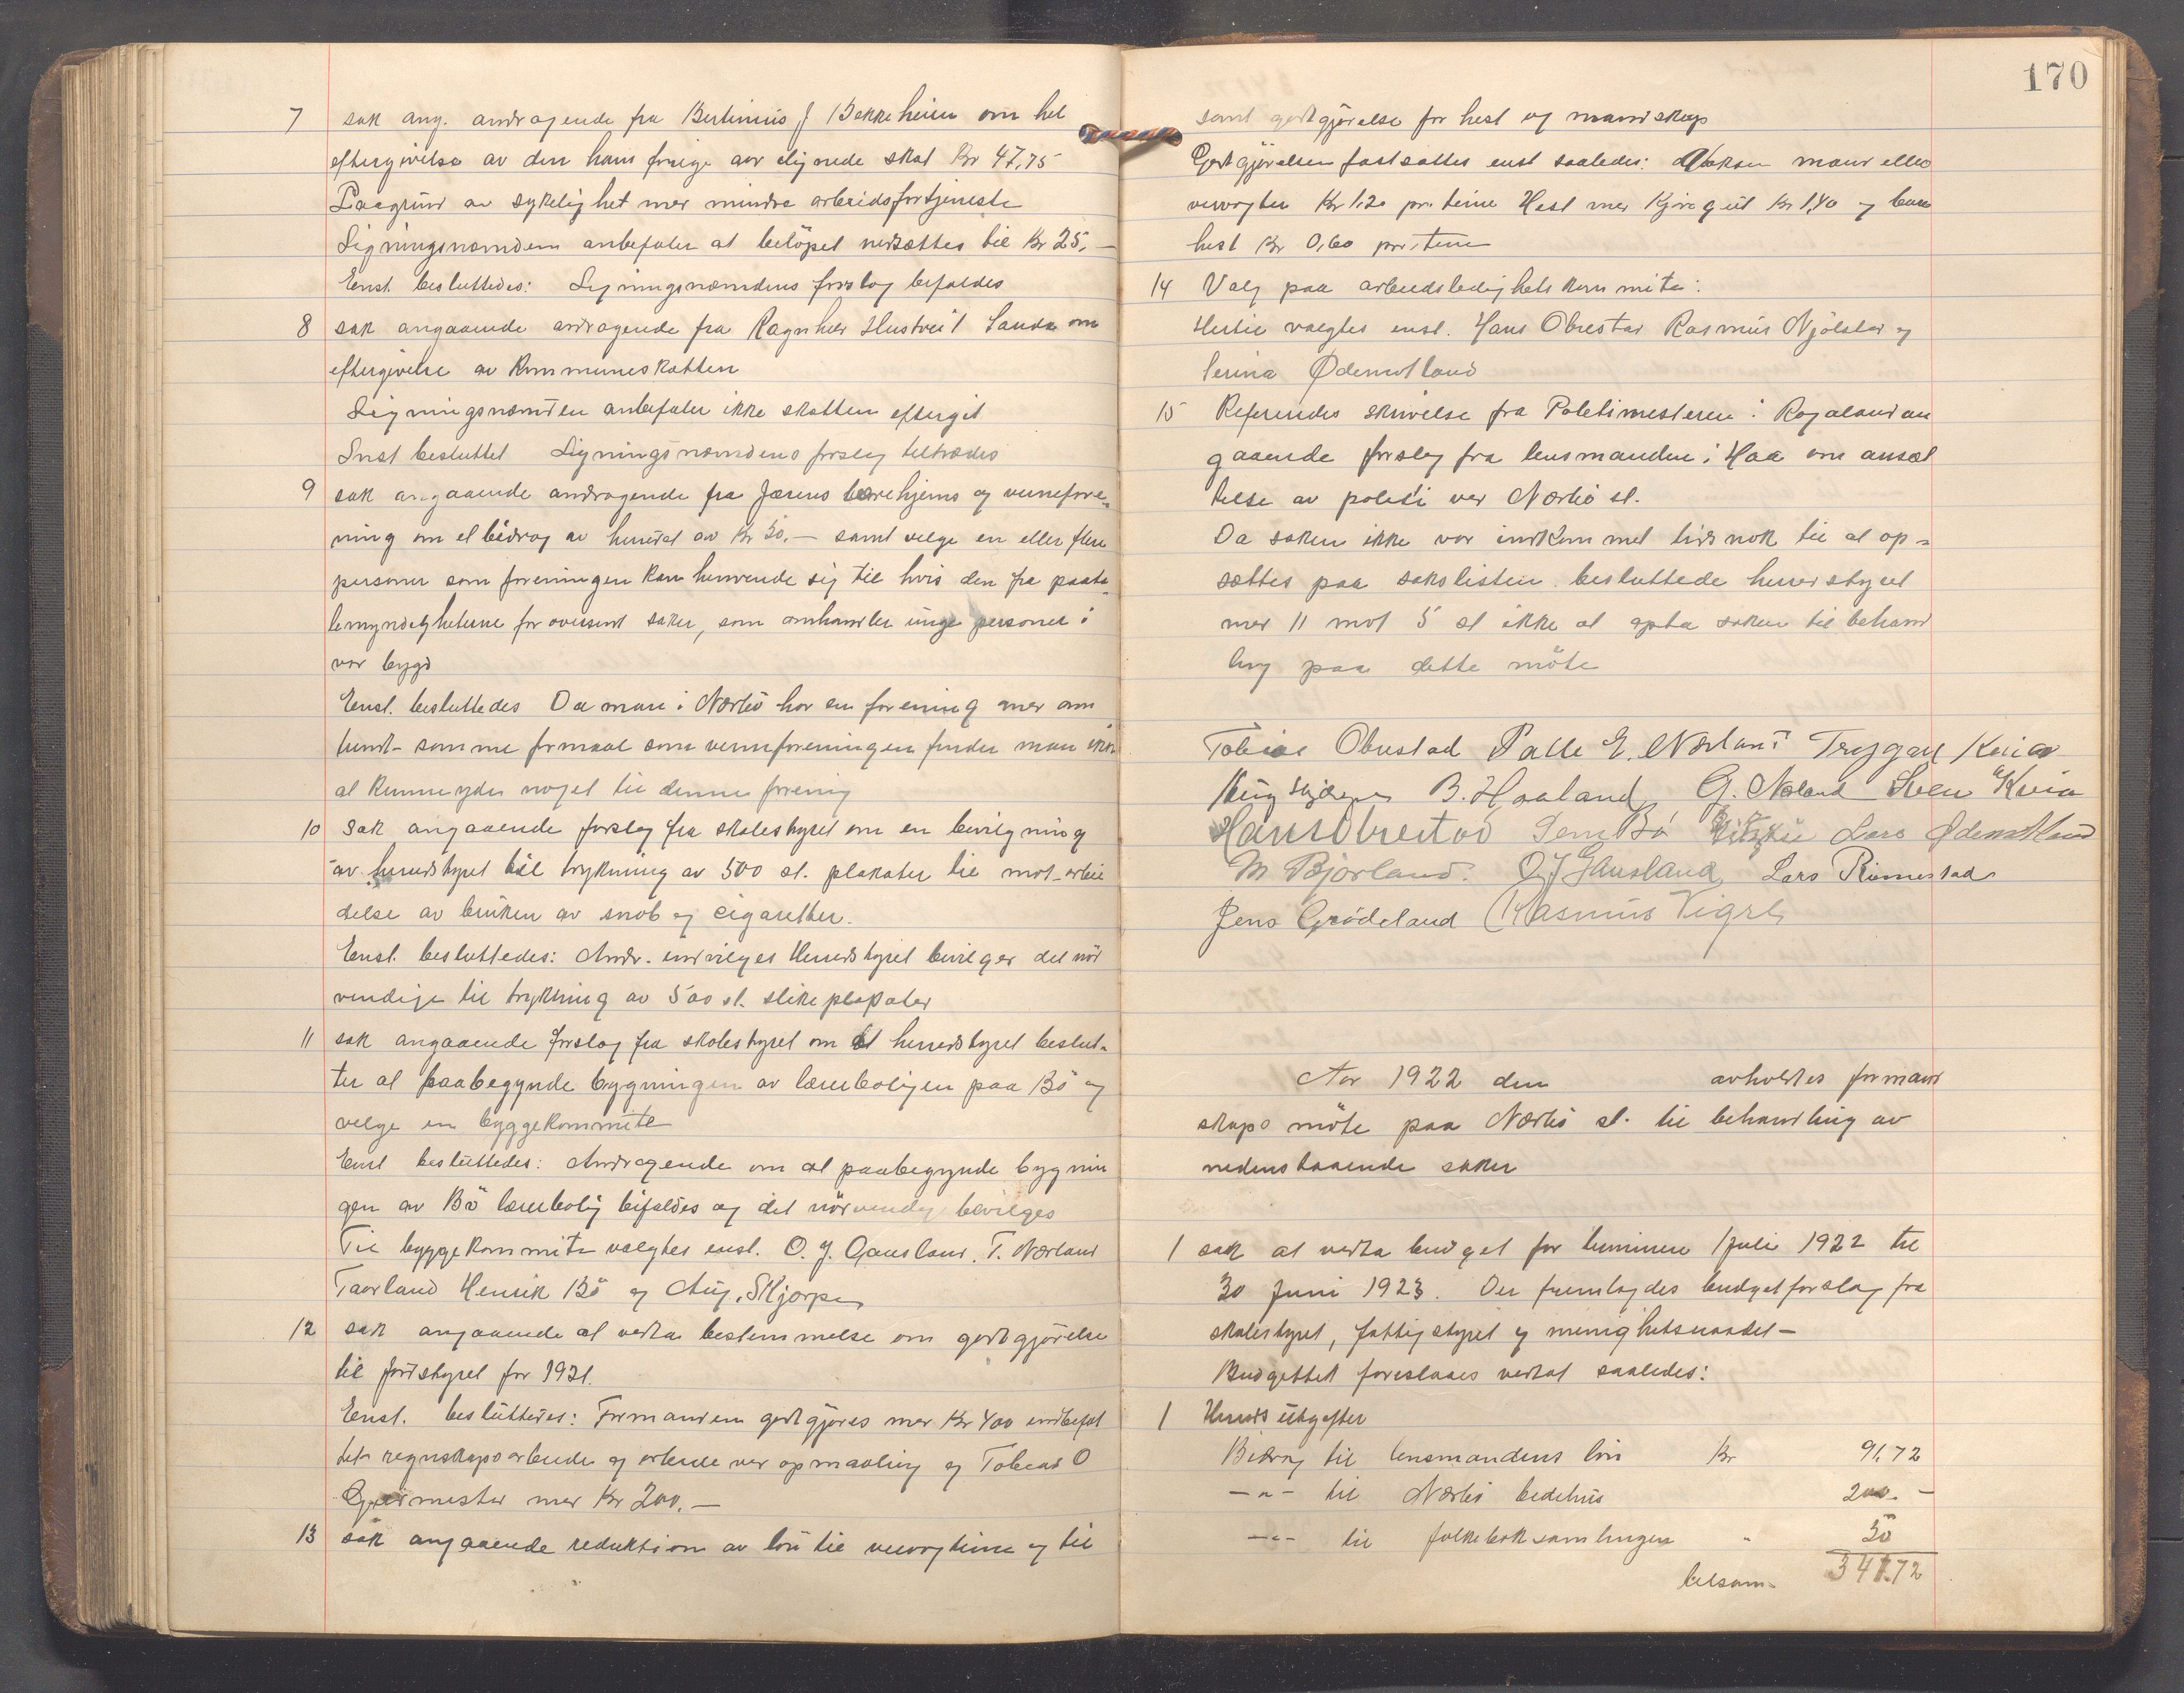 7 sak ang. andragende fra Bertinius J Bekkeheien om hel
eftergivelse av den ham forrige aar lignede skat Kr 47,75
Paagrund av sykelighet med mindre arbeidsfortjeneste
Ligningsnæmden anbefaler at beløpet nedsættes til Kr 25,-
Enst. besluttedes: Ligningsnæmdens forslag bifaldes
8 sak angaaende andragende fra Ragnhild Hustveit Sanda om
eftergivelse av kommuneskatten
Ligningsnæmden anbefaler ikke skatten eftergit
Enst besluttet Ligningsnæmdens forslag tiltrædes
9 sak angaaende andragende fra Jærens værehjems og verneforе-
ning om et bidrag av herredet av Kr 50.- samt velge en eller flere
personer som foreningen kan henvende sig til hvis den fra paata-
lemyndighetene faar oversent saker, som omhandler unge personer i
vor bygd
Enst. besluttedes Da man i Nærbø har en forening med om
trent samme formaal som verneforeningen finder man ikke
at kunne yde noget til denne forening
10 Sak angaaende forslag fra skolestyret om en bevilgning
av herredstyret til trykning av 500 st. plakater til mot-arbei
delse av bruken av snob og cigaretter.
Enst. besluttedes: Andr. indvilges Herredstyret bevilger det nød
vendige til trykning av 500 st. slike plakater
11 sak angaaende forslag fra skolestyret om at herredstyret beslut-
ter at paabegynde bygningen av lærerboligen paa Bø og
velge en byggekommite
Enst besluttedes: Andragende om at paabegynde bygnin
gen av Bø lærerbolig bifaldes og det nødvendige bevilges
Til byggekommite valgtes enst. O. J. Gausland. T. Nærland
Taarland Henrik Bø og Aug. Skjærpe
12 sak angaaende at vedta bestemmelse om godtgjørelse
til forstyret for 1921.
Enst. besluttedes: Formanden godtgjøres med Kr 400 indbefat
tet regnskapsarbeide og arbeide ved opmaaling og Tobias O
med Kr 200.-
13 sak angaaende reduktion av løn til veivogterne og til
170
samt godtgjørelse for hest og mandskap
Godtgjørelsen fastsattes enst saaledes: voksen mand eller
veivogter Kr 1.20 pr. time Hest med Kjøregreie Kr 1,40 og bare
hest Kr 0,60 pr. time
14 Valg paa arbeidsledighetskommite:
Hertil valgtes enst. Hans Obrestad Rasmus Njølstad og
Serina Ødemotland
15 Refereredes skrivelse fra Politimesteren i Rogaland an
gaaende forslag fra lensmanden i Haa om ansæt
telse av politi ved Nærbø st.
Da saken ikke var indkommet tids nok til at op-
sættes paa sakslisten besluttede herredstyret
med 11 mot 5 st ikke at opta saken til behand
ling paa dette møte
Tobias Obrestad Palle E. Nærland Tryggve Kvia
Aug Skjærpe B. Haaland G. Næland Sven Kvia
Hans Obrestad Lars Ødemotland
M Bjorland. O J Gausland Lars Rimestad
Jens Grødeland Rasmus Vigre
Aar 1922 den avholdtes formand
skaps møte paa Nærbø st. til behandling av
nedenstaaende saker
1 sak at vedta budget for terminen 1 juli 1922 til
30 Juni 1923. Der fremlagdes budgetforslag fra
skolestyret, fattigstyret og menighetsraadet-
Budgettet foreslaaes vedtat saaledes:
1 Herredsutgifter
Bidrag til lensmandens løn Kr 91,72
-"- til Nærbø bedehus 200.-
-"- til folkeboksamlingen " 50
tilsam- 341.72